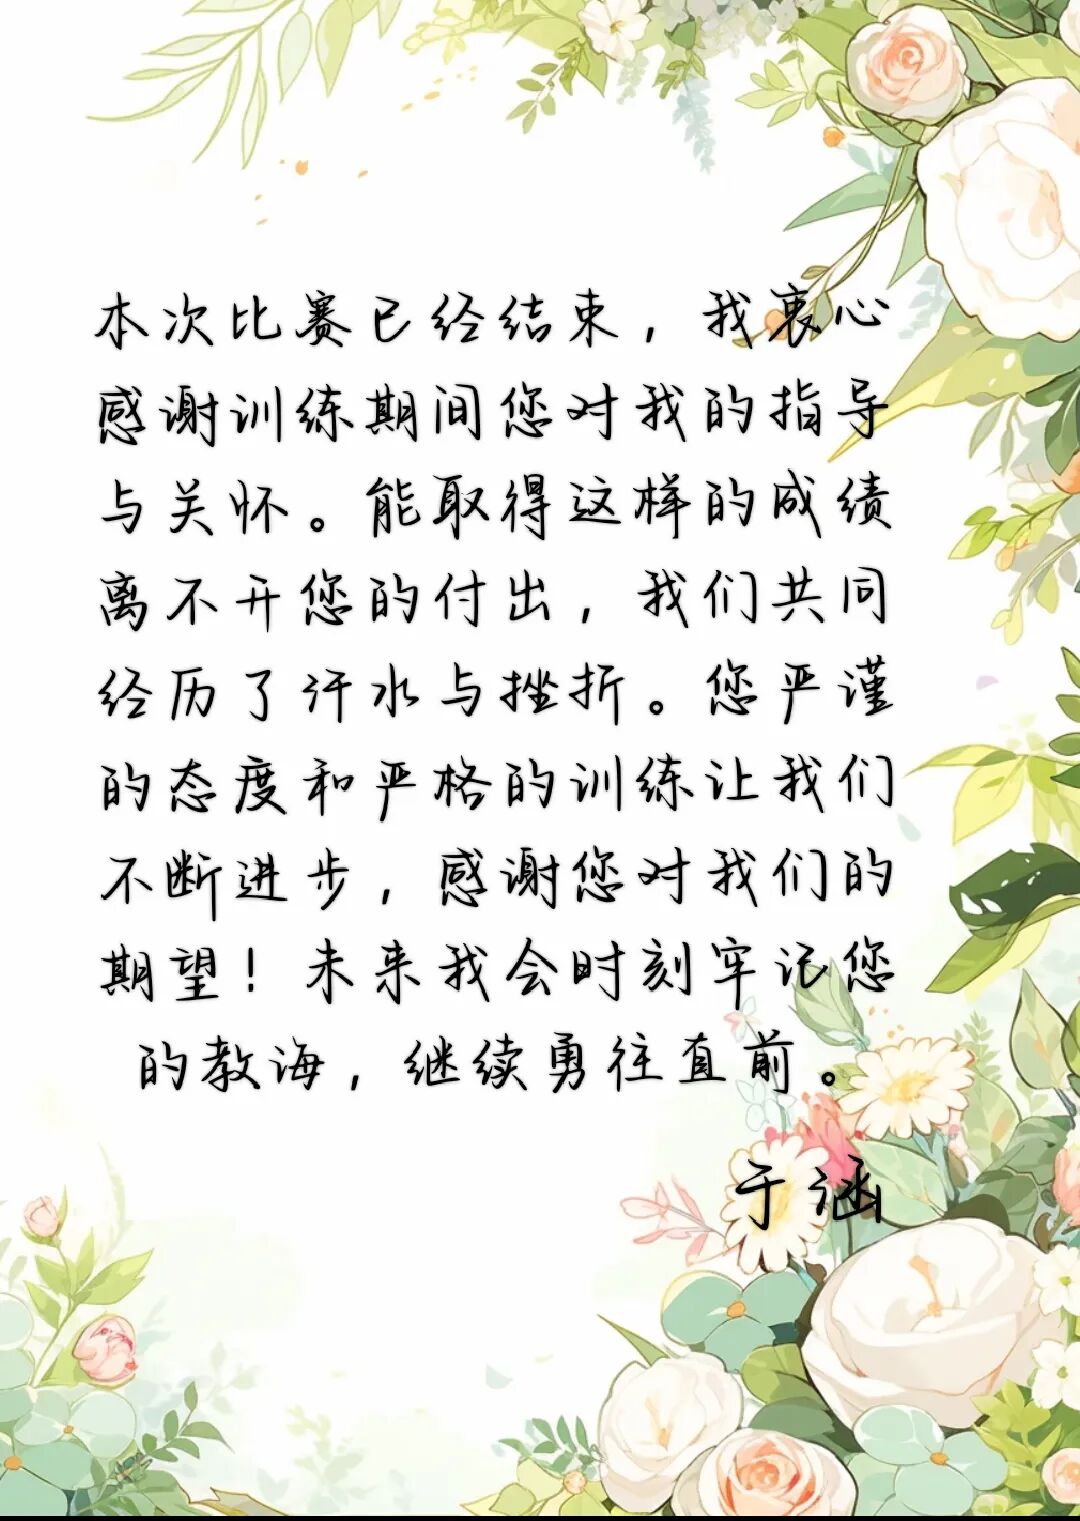 本次比赛已经结束，我衷心
感谢训练期间您对我的指导
与关怀。能取得这样的成绩
离不开您的付出，我们共同
经历了汗水与挫折。您严谨
的态度和严格的训练让我们
不断进步，感谢您对我们的
期望！未来我会时刻牢记您
的教诲，继续勇往直前。
于涵